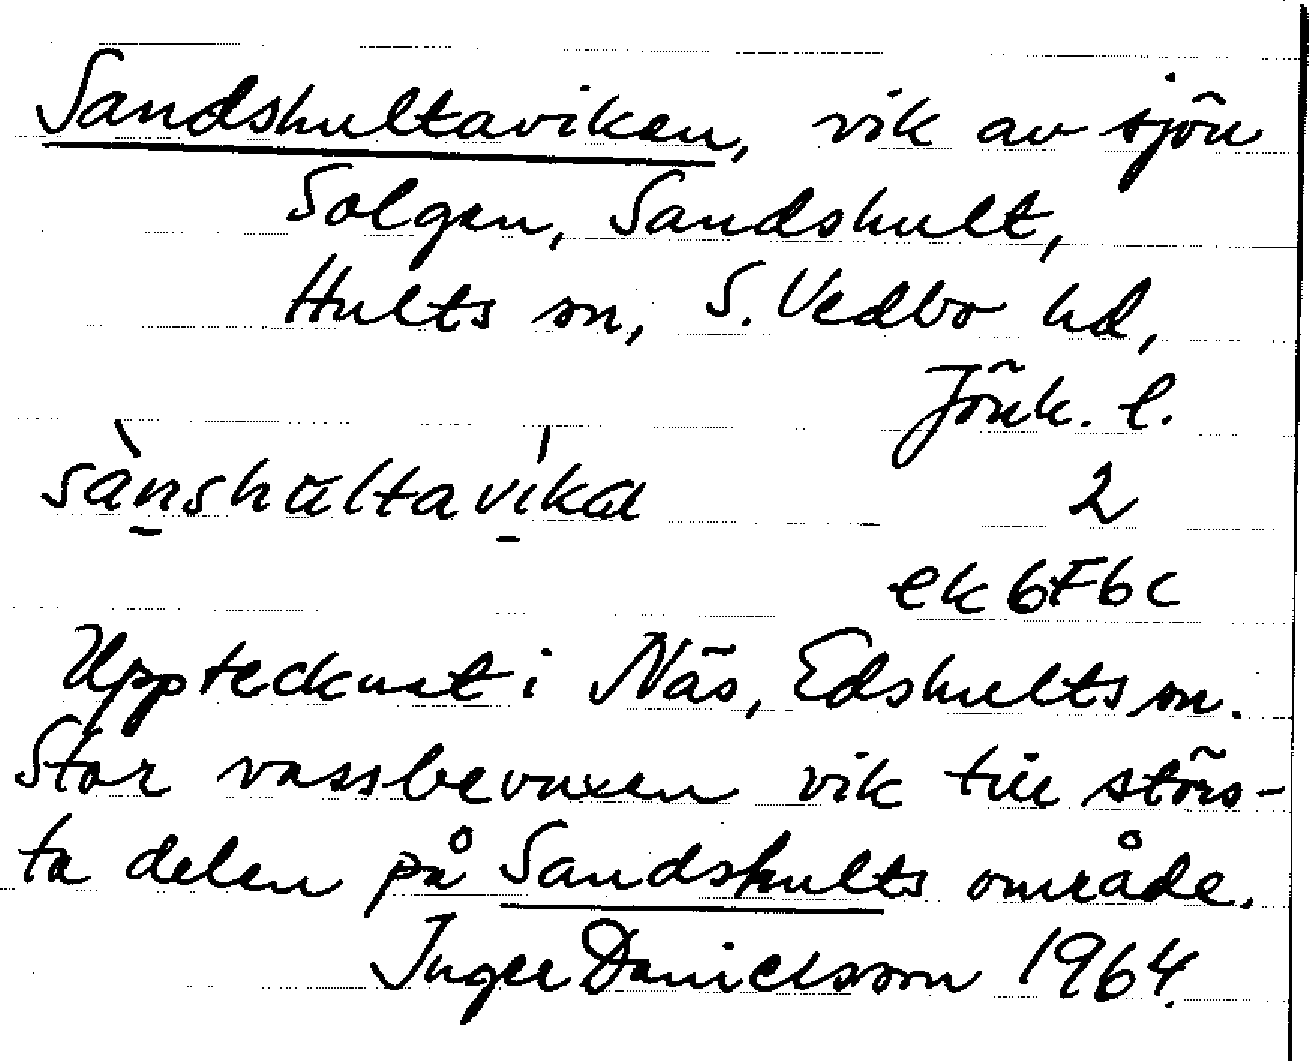 Sandshultaviken, vik av sjön
Solgen, Sandshult,
Hults sn, S. Vedbo hd,
Jönk. l.
sànshultavíka 2
ek 6F6c
Upptecknat i Näs, Edshults sn.
Stor vassbevuxen vik till störs-
ta delen på Sandshults område.
Inger Danielsson 1964.